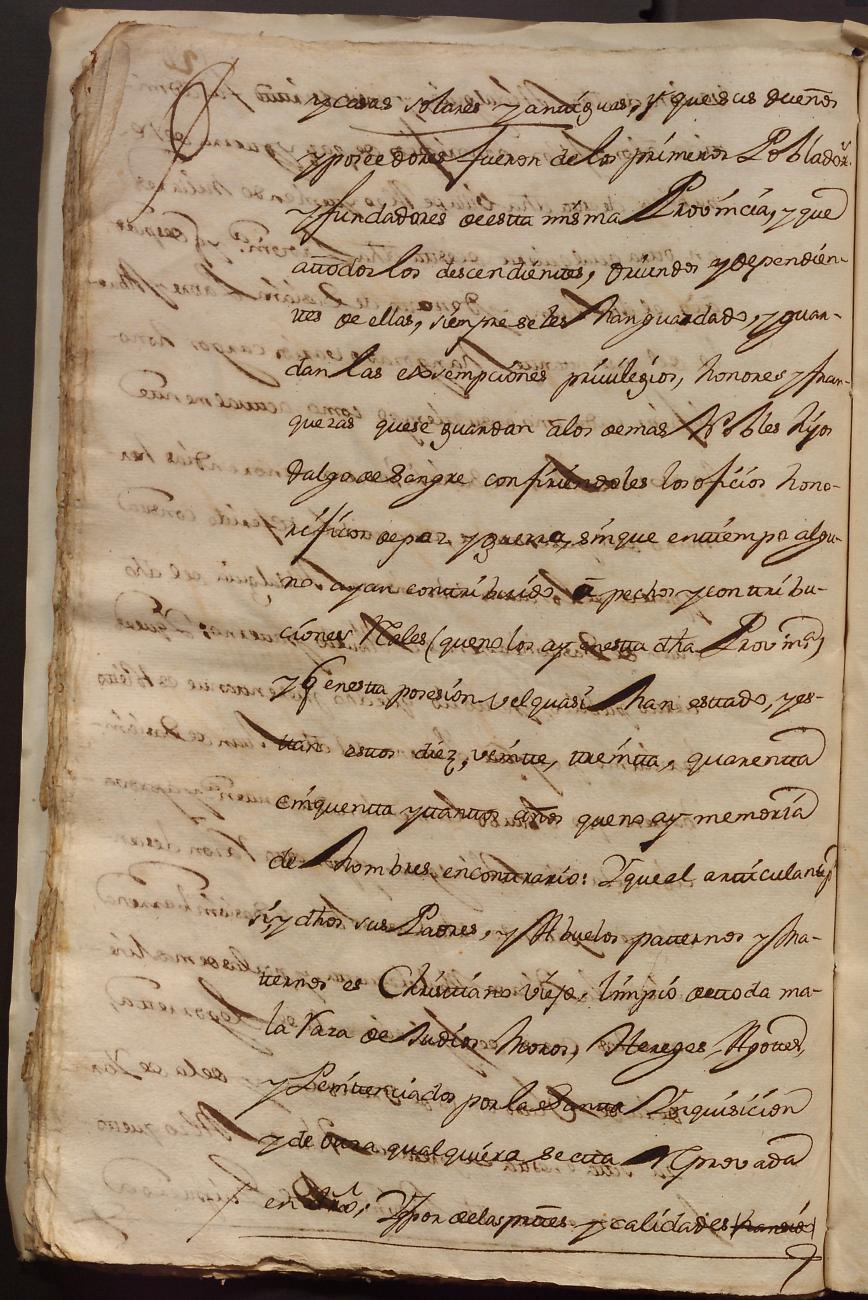 y casas solares y antiguas, y que sus dueños
y poseedores fueron de los primeros Poblador.s
y fundadores de estta misma Provincia, y que
a ttodos los descendientes, oriundos y dependien-
ttes de ellas, siempre se les han guardado, y guar-
dan las exsempciones privilegios, honores y fran-
quezas que se guardan a los demas Nobles hijos
dalgo de Sangre confiriendoles los oficios hono-
rificos de paz y guerra, sin que en ttiempo algu-
no ayan conttribuido, a pechos y conttribu-
ciones Rales (que no los ay en estta dha Provin.a)
y q en estta posesion vel quasi han esttado, y es-
ttan esttos diez, veintte, tteintta, quarentta
cinquentta y ttanttos años que no ay memoria
de hombres en conttrario: Y que el artticulantte
si, y dhos sus Padres, y Abuelos patternos y Ma-
tternos es Christtiano viejo, limpio de ttoda ma-
la Raza de Judios, Moros, Hereges, Agottes,
y Penittenciados por la Santta Ynquisicion
y de ottra qualquiera sectta Reprovada
en Dro; Y por de las parttes y calidades